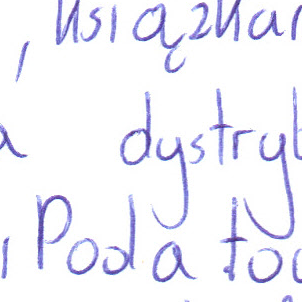 , książkar
a dystryb
i Poda toc